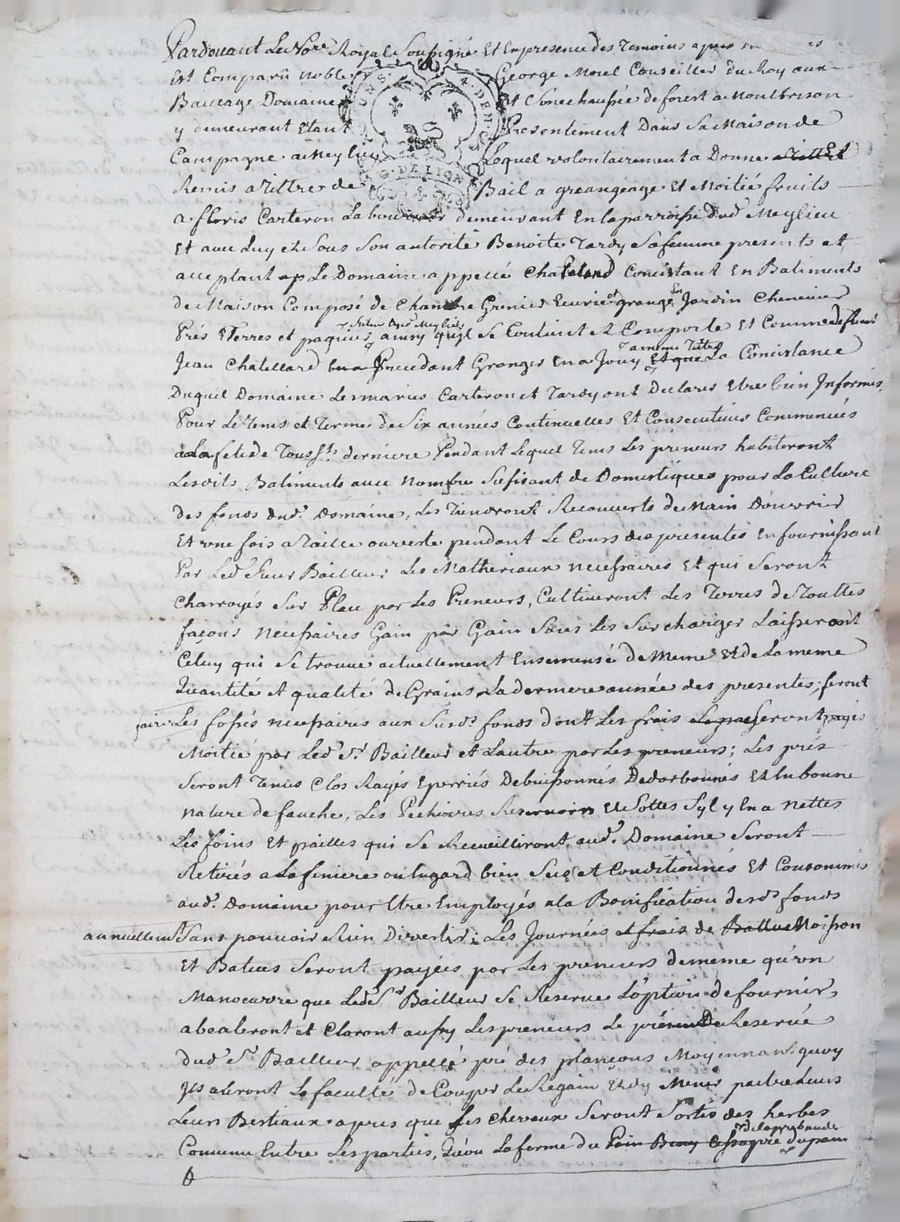 Pardevant Le No.re Royal Soussigné Et En presence des Temoins apres
Est Comparu noble George Morel Conseiller du Roy aux
Baiiage Domaine Et Senechaussée de forest a Montbrison
y demeurant Etant Presentement Dans Sa Maison de
Campagne a Meylieu Lequel volontairement a Donné
Remis a tittre de Bail a greangeage Et Moitié fruits
a floris Carteron Laboureur demeurant En la parroisse dud. Meylieu
Et avec Luy et Sous Son autorité Benoite Tardy Sa femme presents et
acceptant Le Domaine appellé Chatelard Consistant En Batiments
de Maison Composé de Chambre Grenier Ecurie et grange En Jardin Chenevier
Prés Terres et paquiers Situés aud. Meylieu ainsy qu'il Se Contient et Comporte Et Comme
Jean Chatellard En a Jouy a meme Tittre Et que La Consistance
Duquel Domaine Les maries Carteron et Tardy ont Declares Etre bien Informés
Pour Le Tems et Terme de Six années Continuelles Et Consecutives Commencées
a La fete de Touss.ts derniere Pendant Lequel Tems Les preneurs habiteront
Lesdits Batiments avec Nombre Sufisant de Domestiques pour La Culture
des fonds dud. Domaine, Les Tiendront Recouverts de Main D'ouvrier
Et une fois a Taille ouverte pendant Le Cours des presentes En fournissant
Par Led. Sieur Bailleur Les Matheriaux necessaires Et qui Seront
Charroyés Sur Place par Les Preneurs, Cultiveront Les Terres de Touttes
façons necessaires Gain par Gain Sans Les Surcharger Laisseront
Celuy qui Se trouve actuellement Ensemensé de Meme Et de La meme
Quantité et qualité de Grains La derniere année des presentes; feront
faire Les fossés necessaires aux Susd. fonds dont Les frais Seront payés
Moitié par Led. Sr. Bailleur et Lautre par Les preneurs; Les prés
Seront Tenus Clos Rayés Eperriés Debuissonnés Dedarbonnés Et En bonne
nature de fauche, Les Pecheoires Reservoirs Et Sottes Syl y En a nettes
Les foins Et pailles qui Se Recueilliront aud. Domaine Seront
Retirés a La feniere ou hangard bien Secs et Conditionnés Et Consommés
aud. Domaine pour Etre Employés a La Bonification desd. fonds
annuellemt Sans pouvoir Rien Divertir; Les Journées et frais de Moisson
Et Batues Seront payées par Les preneurs de meme qu'un
Manoeuvre que Led. Sr Bailleur Se Reserve L'option de fournir,
abealeront et Claront aussy Les preneurs Le pré Reservé
dud. Sr. Bailleur appellé pré des plançons Moyennant quoy
Ils auront La faculté de Couper Le Regain Et d'y Mener paitre
Leurs Bestiaux apres que Les Chevaux Seront Sortis des herbes
Convenu Entre Les parties,